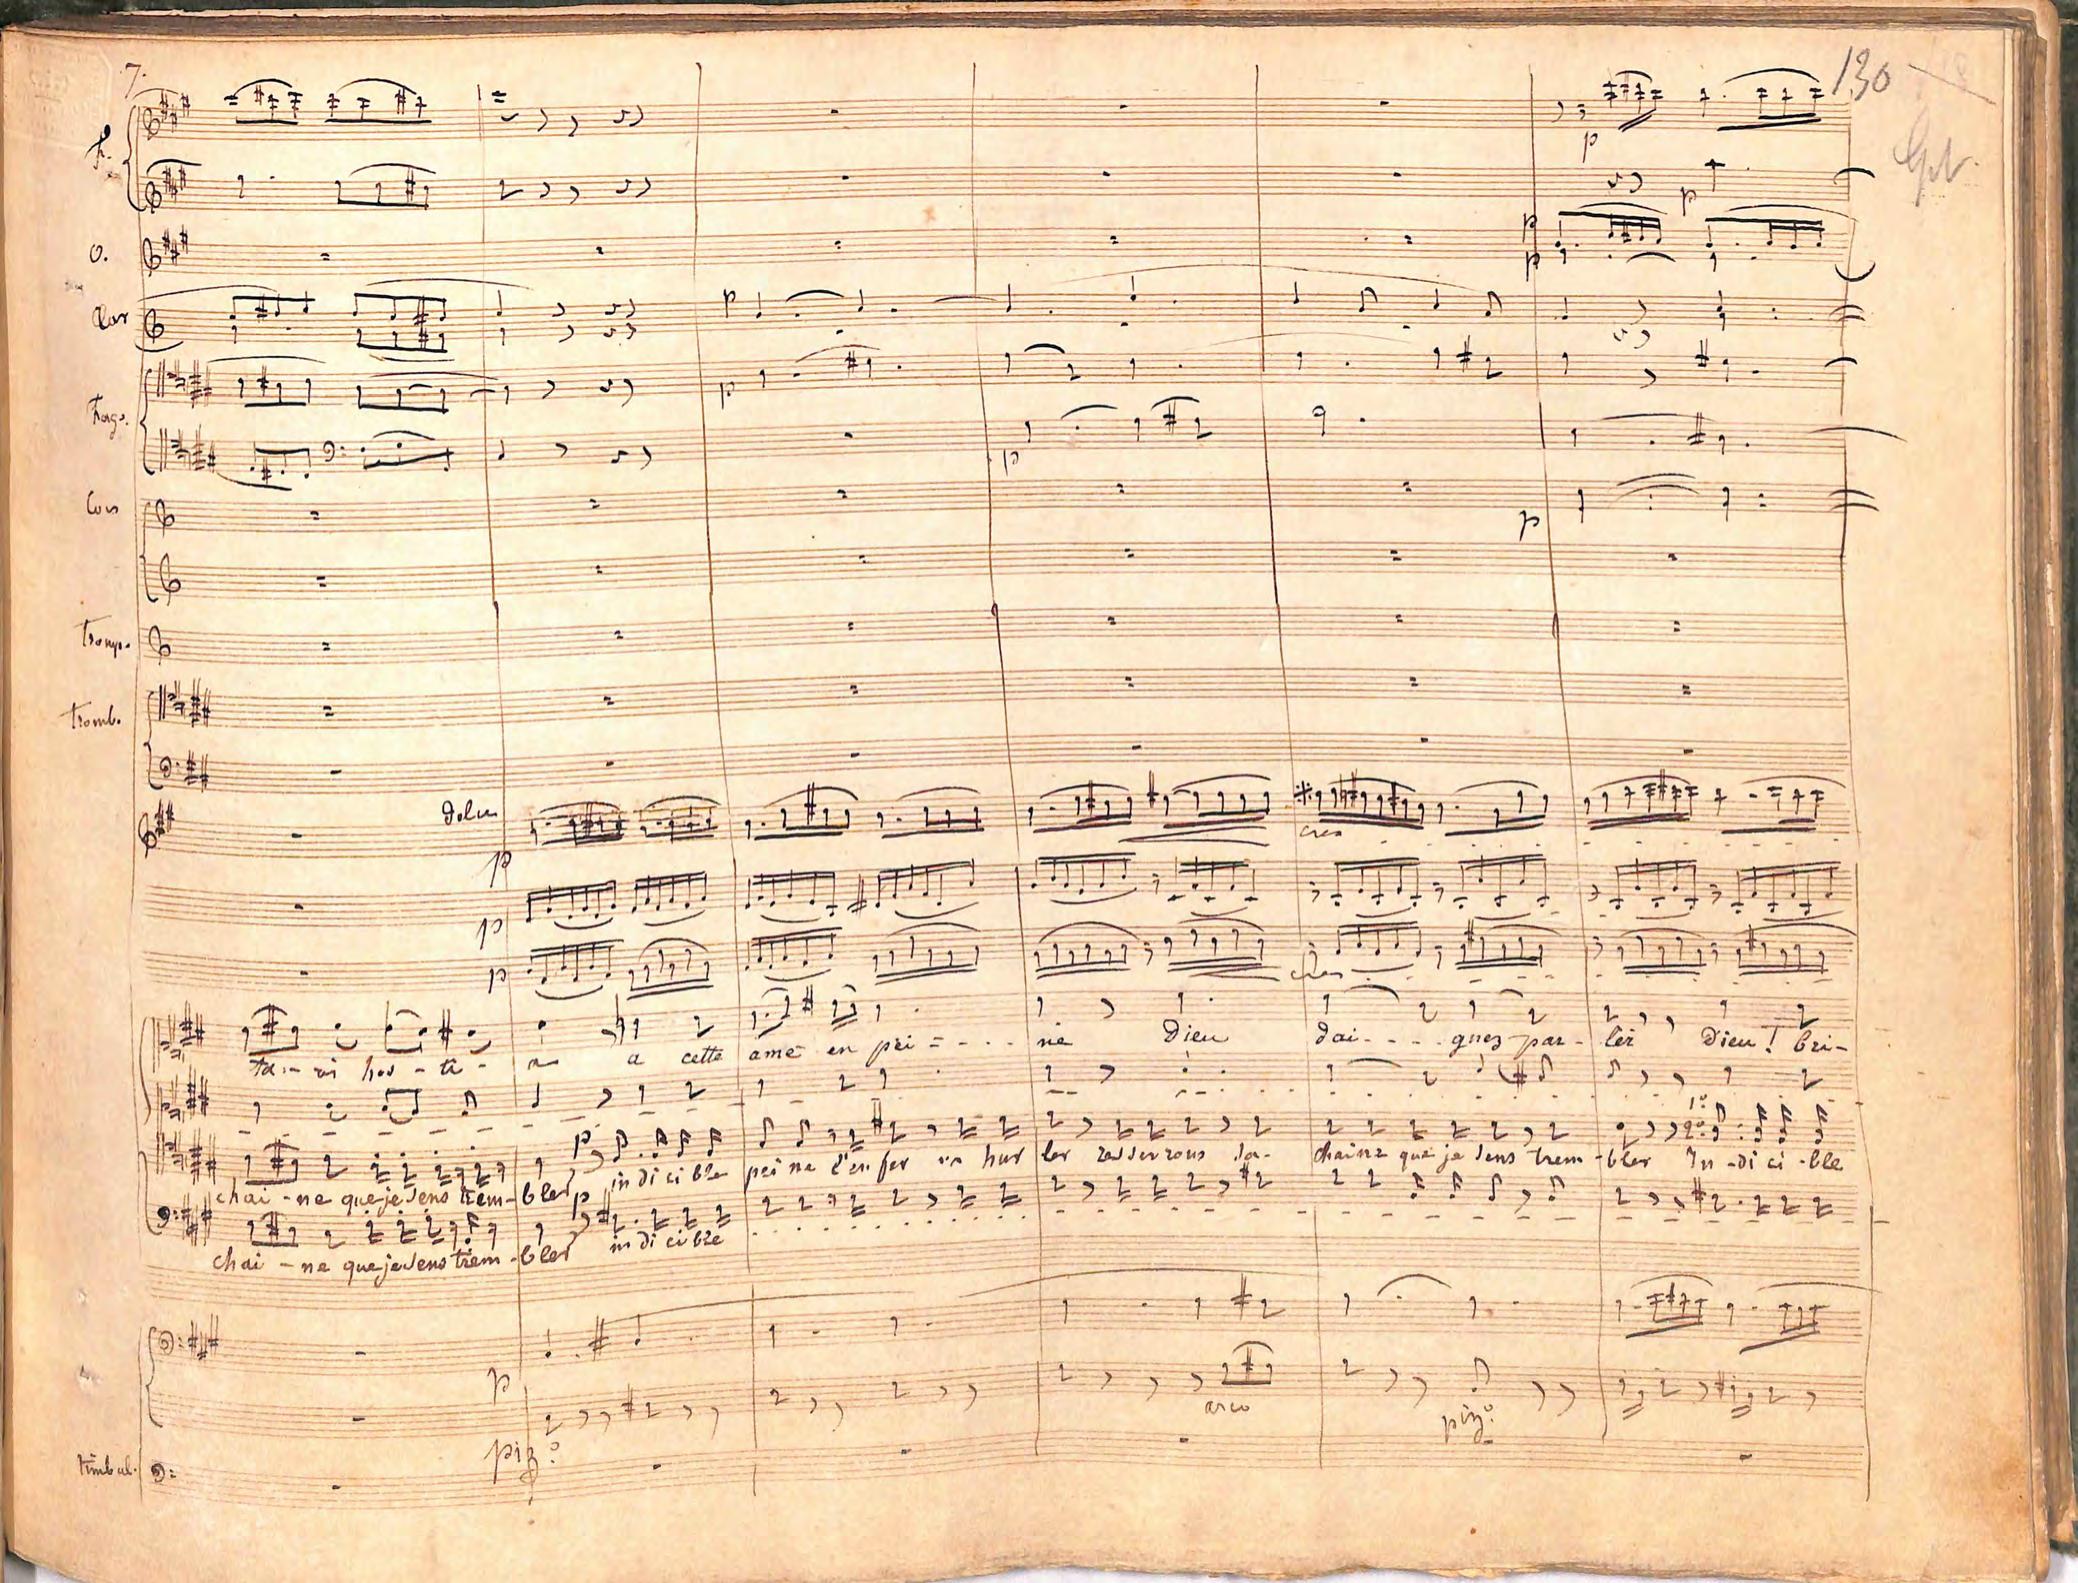 7.
130
fl.
O.
Clar
p
Fag.
p
Cors
Tromp.
Tromb.
dolce
p
cres
p
p
cres
ta - vi hos - ti - a a cette ame en pei - - - - ne Dieu dai - - - - gnez par - ler Dieu ! bri-
p 1º 2º
chai - ne que je sens trem - bler indicible peine l'enfer va hur ler resserrons sa- chaine que je sens trem - bler In - di ci - ble
p
chai - ne que je sens trem - bler indicible
p
arco
piz:º
piz:º
Timbal.